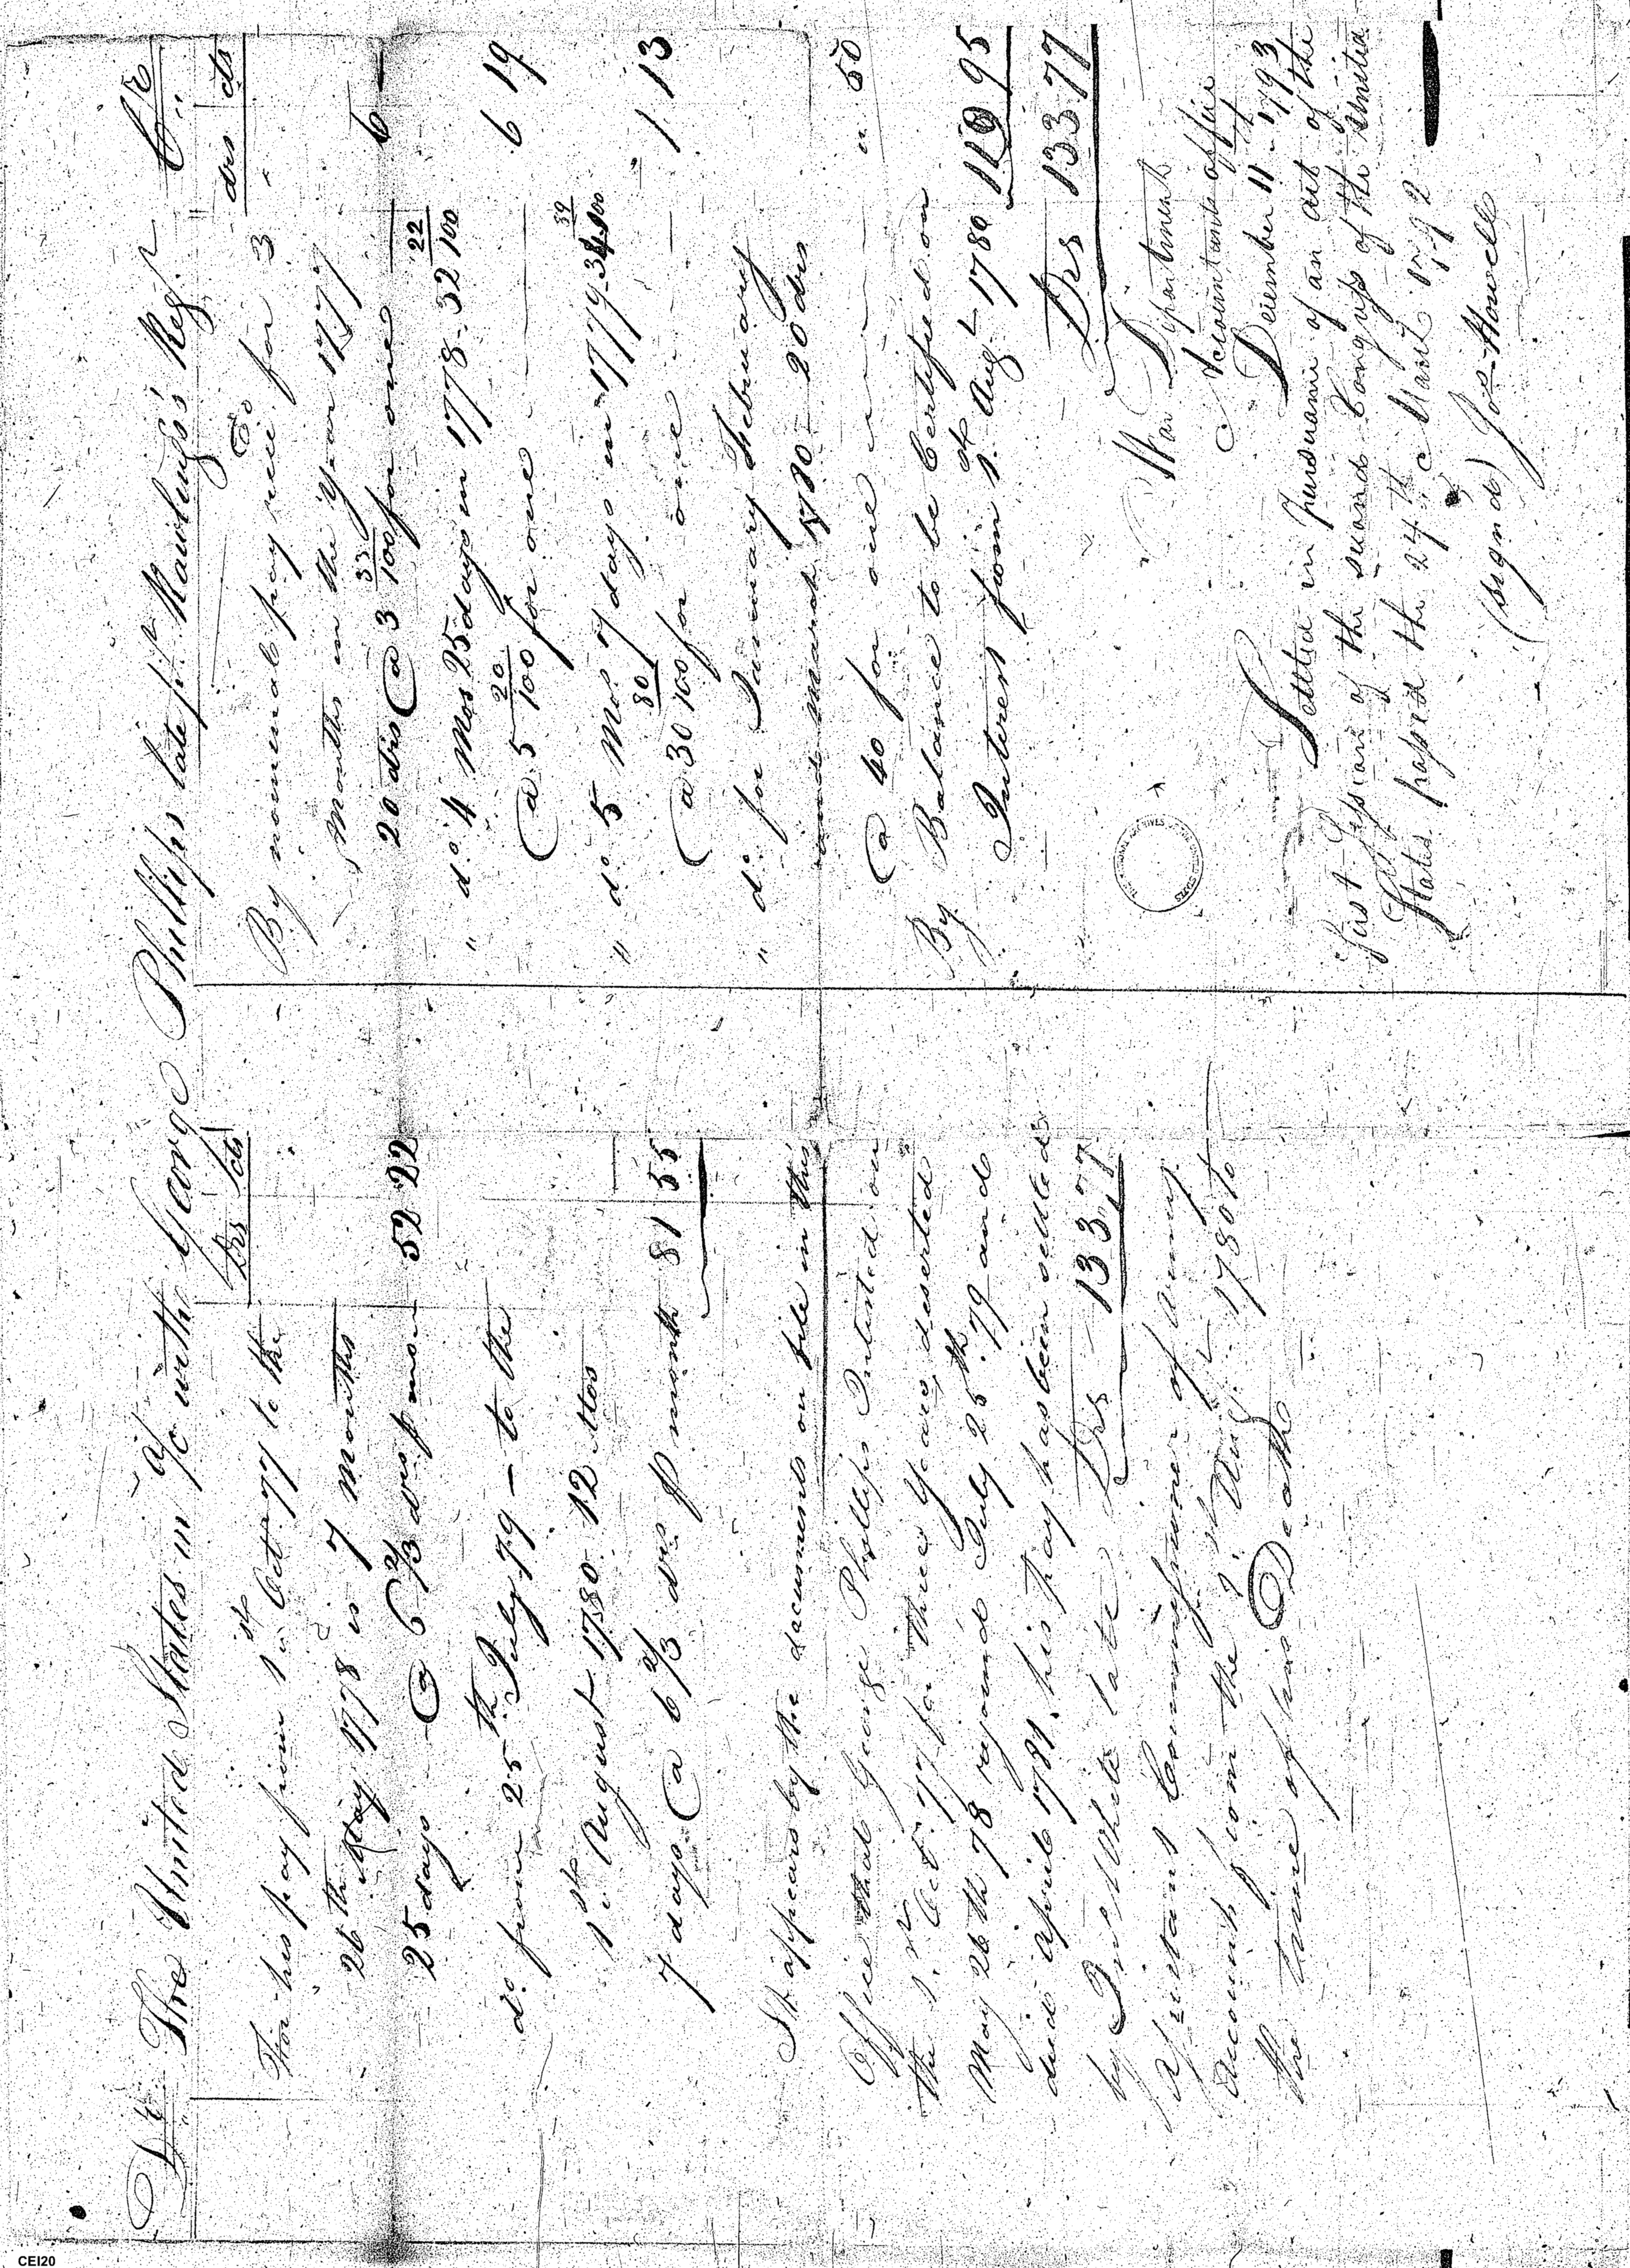 Dr. The United States in a/c with George Phillips late pt. Rawlings's Regt. Cr.
Drs cts
For his pay from 1st Oct 77 to the
26th May 1778 is 7 months
25 days @ 6 2/3 drs p mon 52 22
do from 25th July 79 - to the
1st August 1780 12 Mos
7 days @ 6 2/3 drs p month 81 55
It appears by the documents on file in this
Office that George Phillips Inlisted on
the 1st Oct. 77 for three years, deserted
May 26th 78 rejoined July 25th 79 and
died april 1781. his pay has been settled
by white late Drs 133,77
assistant Commissioner of Army
Accounts from the 1st Augt 1780 to
the time of his Death
drs cts
By nominal pay recd. for 3
Months in the Year 1777
20 drs @ 3 33/100 for one 6 -
" do 4 Mos 25 days in 1778 - 32 22/100
@ 5 20/100 for one 6 19
" do 5 Mos 7 days in 1779 - 34 39/100
@ 30 80/100 for one 1 13
" do for January February
and march 1780 - 20 drs
@ 40 for one " 50
By Balance to be Certified on
Interest from 1st Augt 1780 119 95
Drs 133 77
War Department
Accountants office
December 11th 1793
Settled in pursuance of an act of the
first Session of the second Congress of the United
States passed the 24th March 1792
(signed) Jos Howell
CEI20